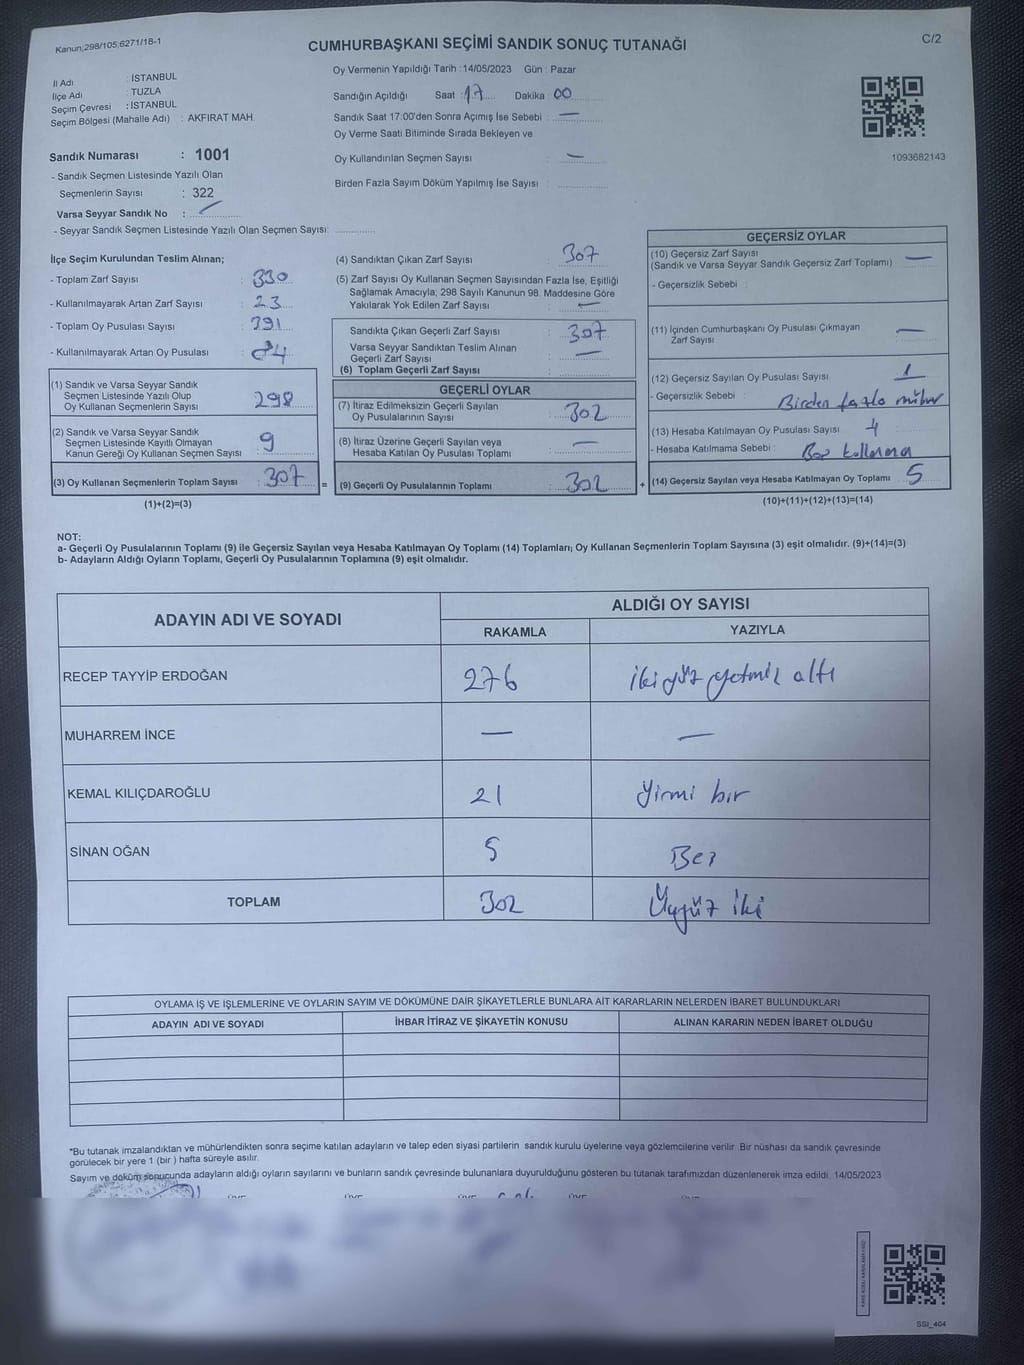 Kanun;298/105;6271/18-1
C/2
CUMHURBAŞKANI SEÇİMİ SANDIK SONUÇ TUTANAĞI
İl Adı : İSTANBUL
İlçe Adı : TUZLA
Seçim Çevresi : İSTANBUL
Seçim Bölgesi (Mahalle Adı) : AKFIRAT MAH.
Sandık Numarası : 1001
- Sandık Seçmen Listesinde Yazılı Olan
Seçmenlerin Sayısı : 322
Varsa Seyyar Sandık No :
- Seyyar Sandık Seçmen Listesinde Yazılı Olan Seçmen Sayısı:
Oy Vermenin Yapıldığı Tarih : 14/05/2023 Gün : Pazar
Sandığın Açıldığı Saat : 17 Dakika : 00
Sandık Saat 17:00'den Sonra Açımış İse Sebebi : —
Oy Verme Saati Bitiminde Sırada Bekleyen ve
Oy Kullandırılan Seçmen Sayısı : —
Birden Fazla Sayım Döküm Yapılmış İse Sayısı :
1093682143
İlçe Seçim Kurulundan Teslim Alınan;
- Toplam Zarf Sayısı : 330
- Kullanılmayarak Artan Zarf Sayısı : 23
- Toplam Oy Pusulası Sayısı : 391
- Kullanılmayarak Artan Oy Pusulası : 84
(1) Sandık ve Varsa Seyyar Sandık
Seçmen Listesinde Yazılı Olup
Oy Kullanan Seçmenlerin Sayısı : 298
(2) Sandık ve Varsa Seyyar Sandık
Seçmen Listesinde Kayıtlı Olmayan
Kanun Gereği Oy Kullanan Seçmen Sayısı : 9
(3) Oy Kullanan Seçmenlerin Toplam Sayısı : 307 =
(1)+(2)=(3)
(4) Sandıktan Çıkan Zarf Sayısı : 307
(5) Zarf Sayısı Oy Kullanan Seçmen Sayısından Fazla İse, Eşitliği
Sağlamak Amacıyla; 298 Sayılı Kanunun 98. Maddesine Göre
Yakılarak Yok Edilen Zarf Sayısı : —
Sandıkta Çıkan Geçerli Zarf Sayısı : 307
Varsa Seyyar Sandıktan Teslim Alınan
Geçerli Zarf Sayısı : —
(6) Toplam Geçerli Zarf Sayısı :
GEÇERLİ OYLAR
(7) İtiraz Edilmeksizin Geçerli Sayılan
Oy Pusulalarının Sayısı : 302
(8) İtiraz Üzerine Geçerli Sayılan veya
Hesaba Katılan Oy Pusulası Toplamı : —
(9) Geçerli Oy Pusulalarının Toplamı : 302 +
GEÇERSİZ OYLAR
(10) Geçersiz Zarf Sayısı
(Sandık ve Varsa Seyyar Sandık Geçersiz Zarf Toplamı) : —
- Geçersizlik Sebebi :
(11) İçinden Cumhurbaşkanı Oy Pusulası Çıkmayan
Zarf Sayısı : —
(12) Geçersiz Sayılan Oy Pusulası Sayısı : 1
- Geçersizlik Sebebi : Birden fazla mühür
(13) Hesaba Katılmayan Oy Pusulası Sayısı : 4
- Hesaba Katılmama Sebebi : Boş kullanma
(14) Geçersiz Sayılan veya Hesaba Katılmayan Oy Toplamı : 5
(10)+(11)+(12)+(13)=(14)
NOT:
a- Geçerli Oy Pusulalarının Toplamı (9) ile Geçersiz Sayılan veya Hesaba Katılmayan Oy Toplamı (14) Toplamları; Oy Kullanan Seçmenlerin Toplam Sayısına (3) eşit olmalıdır. (9)+(14)=(3)
b- Adayların Aldığı Oyların Toplamı, Geçerli Oy Pusulalarının Toplamına (9) eşit olmalıdır.
ADAYIN ADI VE SOYADI
ALDIĞI OY SAYISI
RAKAMLA YAZIYLA
RECEP TAYYİP ERDOĞAN 276 iki yüz yetmiş altı
MUHARREM İNCE — —
KEMAL KILIÇDAROĞLU 21 Yirmi bir
SİNAN OĞAN 5 Beş
TOPLAM 302 Üçyüz iki
OYLAMA İŞ VE İŞLEMLERİNE VE OYLARIN SAYIM VE DÖKÜMÜNE DAİR ŞİKAYETLERLE BUNLARA AİT KARARLARIN NELERDEN İBARET BULUNDUKLARI
ADAYIN ADI VE SOYADI İHBAR İTİRAZ VE ŞİKAYETİN KONUSU ALINAN KARARIN NEDEN İBARET OLDUĞU
*Bu tutanak imzalandıktan ve mühürlendikten sonra seçime katılan adayların ve talep eden siyasi partilerin sandık kurulu üyelerine veya gözlemcilerine verilir .Bir nüshası da sandık çevresinde
görülecek bir yere 1 (bir ) hafta süreyle asılır.
Sayım ve döküm sonucunda adayların aldığı oyların sayılarını ve bunların sandık çevresinde bulunanlara duyurulduğunu gösteren bu tutanak tarafımızdan düzenlenerek imza edildi. 14/05/2023
SSİ_404